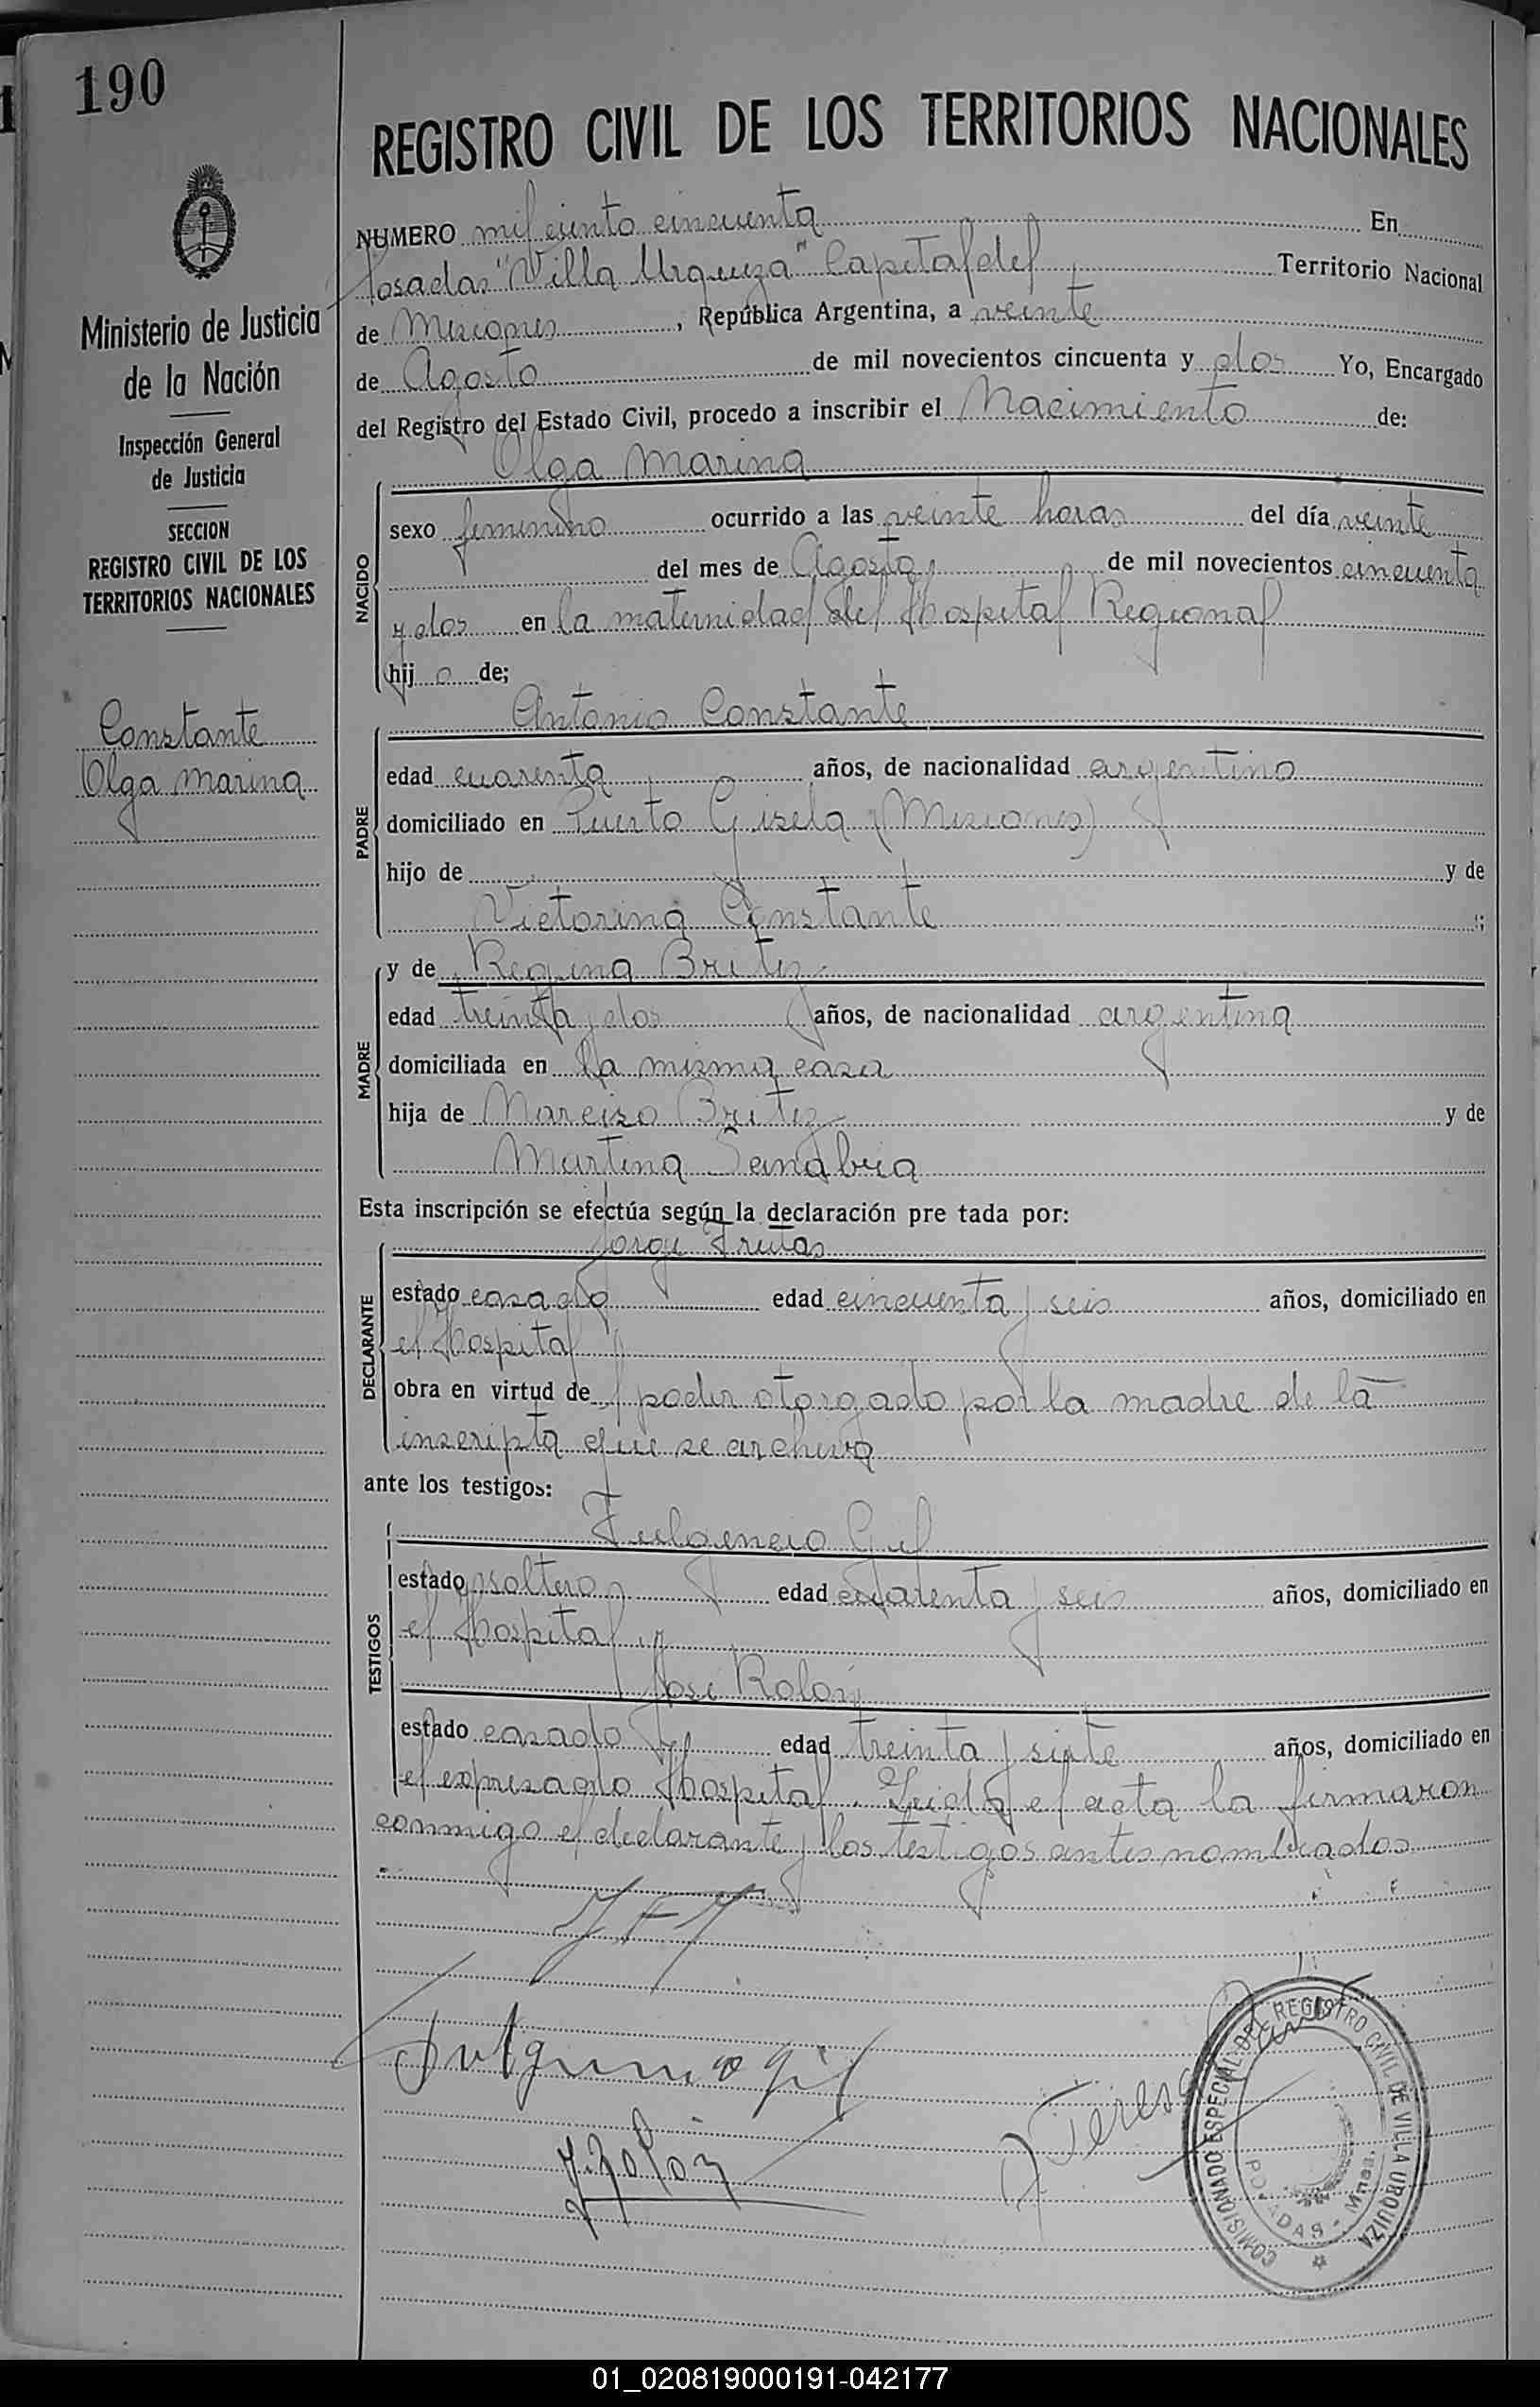 190
REGISTRO CIVIL DE LOS TERRITORIOS NACIONALES
Ministerio de Justicia
de la Nación
Inspección General
de Justicia
SECCION
REGISTRO CIVIL DE LOS
TERRITORIOS NACIONALES
Constante
Olga Marina
NUMERO mil ciento cincuenta En
Posadas "Villa Urquiza" Capital del Territorio Nacional
de Misiones, República Argentina, a veinte
de Agosto de mil novecientos cincuenta y dos Yo, Encargado
del Registro del Estado Civil, procedo a inscribir el Nacimiento de:
Olga Marina
NACIDO
sexo femenino ocurrido a las veinte horas del día veinte
del mes de Agosto de mil novecientos cincuenta
y dos en la maternidad del Hospital Regional
hij a de;
Antonio Constante
PADRE
edad cuarenta años, de nacionalidad argentino
domiciliado en Puerto Gisela (Misiones)
hijo de y de
Victorina Constante ;
MADRE
y de Regina Britez
edad treinta y dos años, de nacionalidad argentina
domiciliada en la misma casa
hija de Narciso Britez y de
Martina Sanabria
Esta inscripción se efectúa según la declaración pre tada por:
Jorge Frutas
DECLARANTE
estado casado edad cincuenta y seis años, domiciliado en
el Hospital
obra en virtud de poder otorgado por la madre de la
inscripta que se archiva
ante los testigos:
Fulgencio Gil
TESTIGOS
estado soltero edad cuarenta y seis años, domiciliado en
el Hospital y
José Rolón
estado casado edad treinta y siete años, domiciliado en
el expresado Hospital. Leida el acta la firmaron
conmigo el declarante y los testigos antes nombrados
Fulgencio Gil
J. Rolón
Teresa
COMISIONADO ESPECIAL DEL REGISTRO CIVIL DE VILLA URQUIZA
POSADAS - Mnes.
01_020819000191-042177